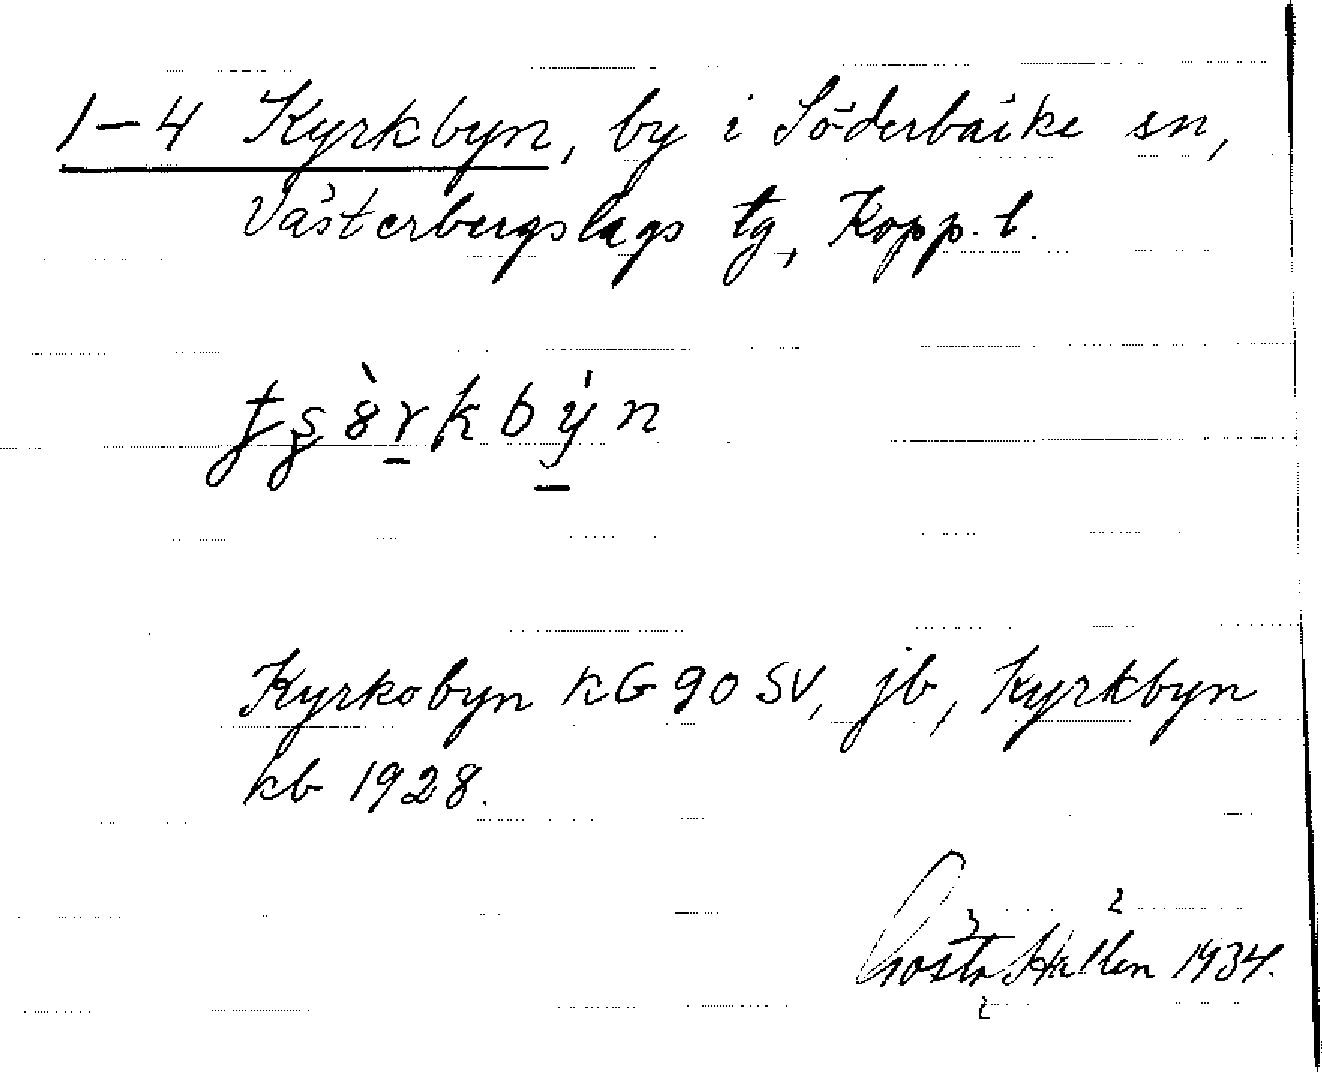 1–4 Kyrkbyn, by i Söderbärke sn,
Västerbergslags tg, Kopp. l.
Kyrkobyn kG 90 SV, jb, Kyrkbyn
kb 1928.
Gösta Hallén 1934.